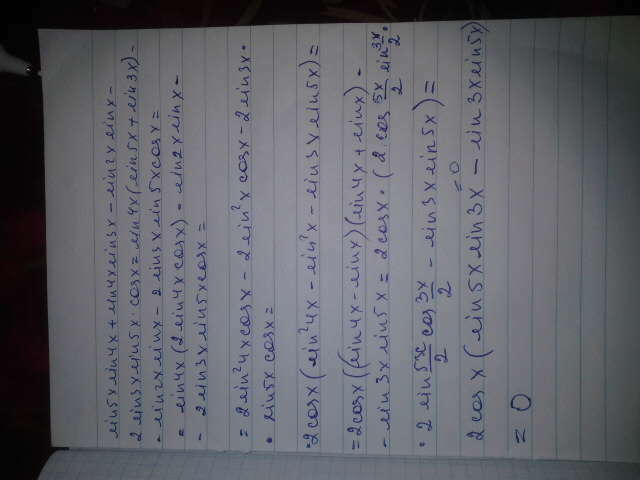 sin5x sin4x + sin4x sin3x - sin2x sinx -
2 sin3x sin5x · cosx = sin4x (sin5x + sin3x) -
- sin2x sinx - 2 sin3x sin5x cosx =
= sin4x (2 sin4x cosx) - sin2x sinx -
- 2 sin3x sin5x cosx =
= 2 sin²4x cosx - 2 sin²x cosx - 2 sin3x ·
· sin5x cosx =
= 2 cosx (sin²4x - sin²x - sin3x sin5x) =
= 2 cosx ((sin4x - sinx) (sin4x + sinx) -
- sin 3x sin 5x = 2 cosx · (2 cos 5x/2 sin 3x/2 ·
· 2 sin 5x/2 cos 3x/2 - sin 3x sin 5x) =
= 0
2 cos x (sin 5x sin 3x - sin 3x sin 5x)
= 0